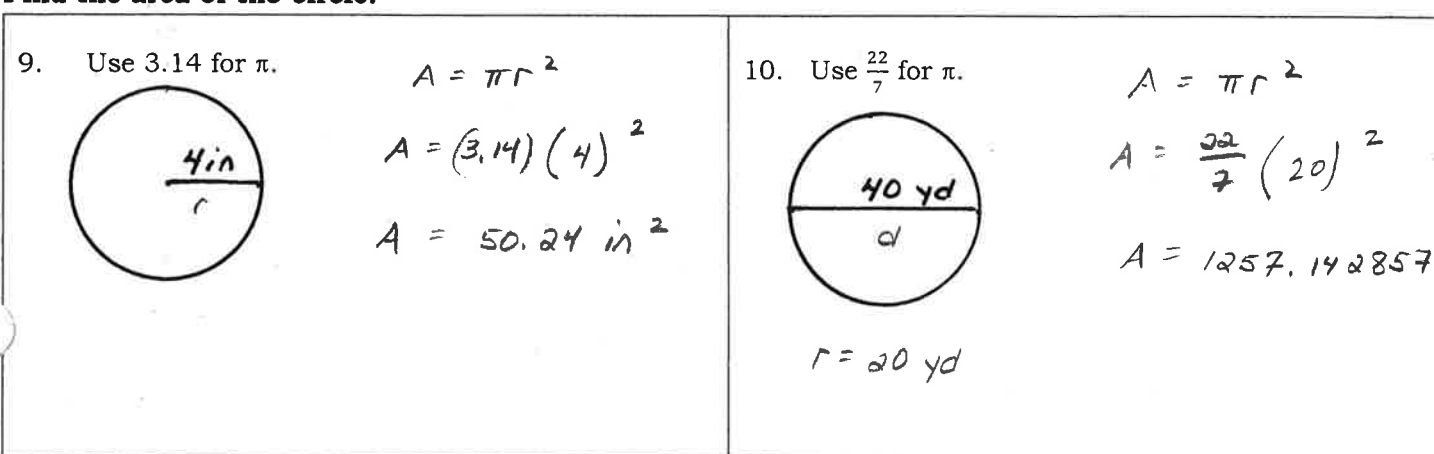 Find the area of the circle.
9. Use 3.14 for π.
4in
r
A = πr²
A = (3.14)(4)²
A = 50.24 in²
10. Use 22/7 for π.
40 yd
d
r = 20 yd
A = πr²
A = 22/7 (20)²
A = 1257.142857